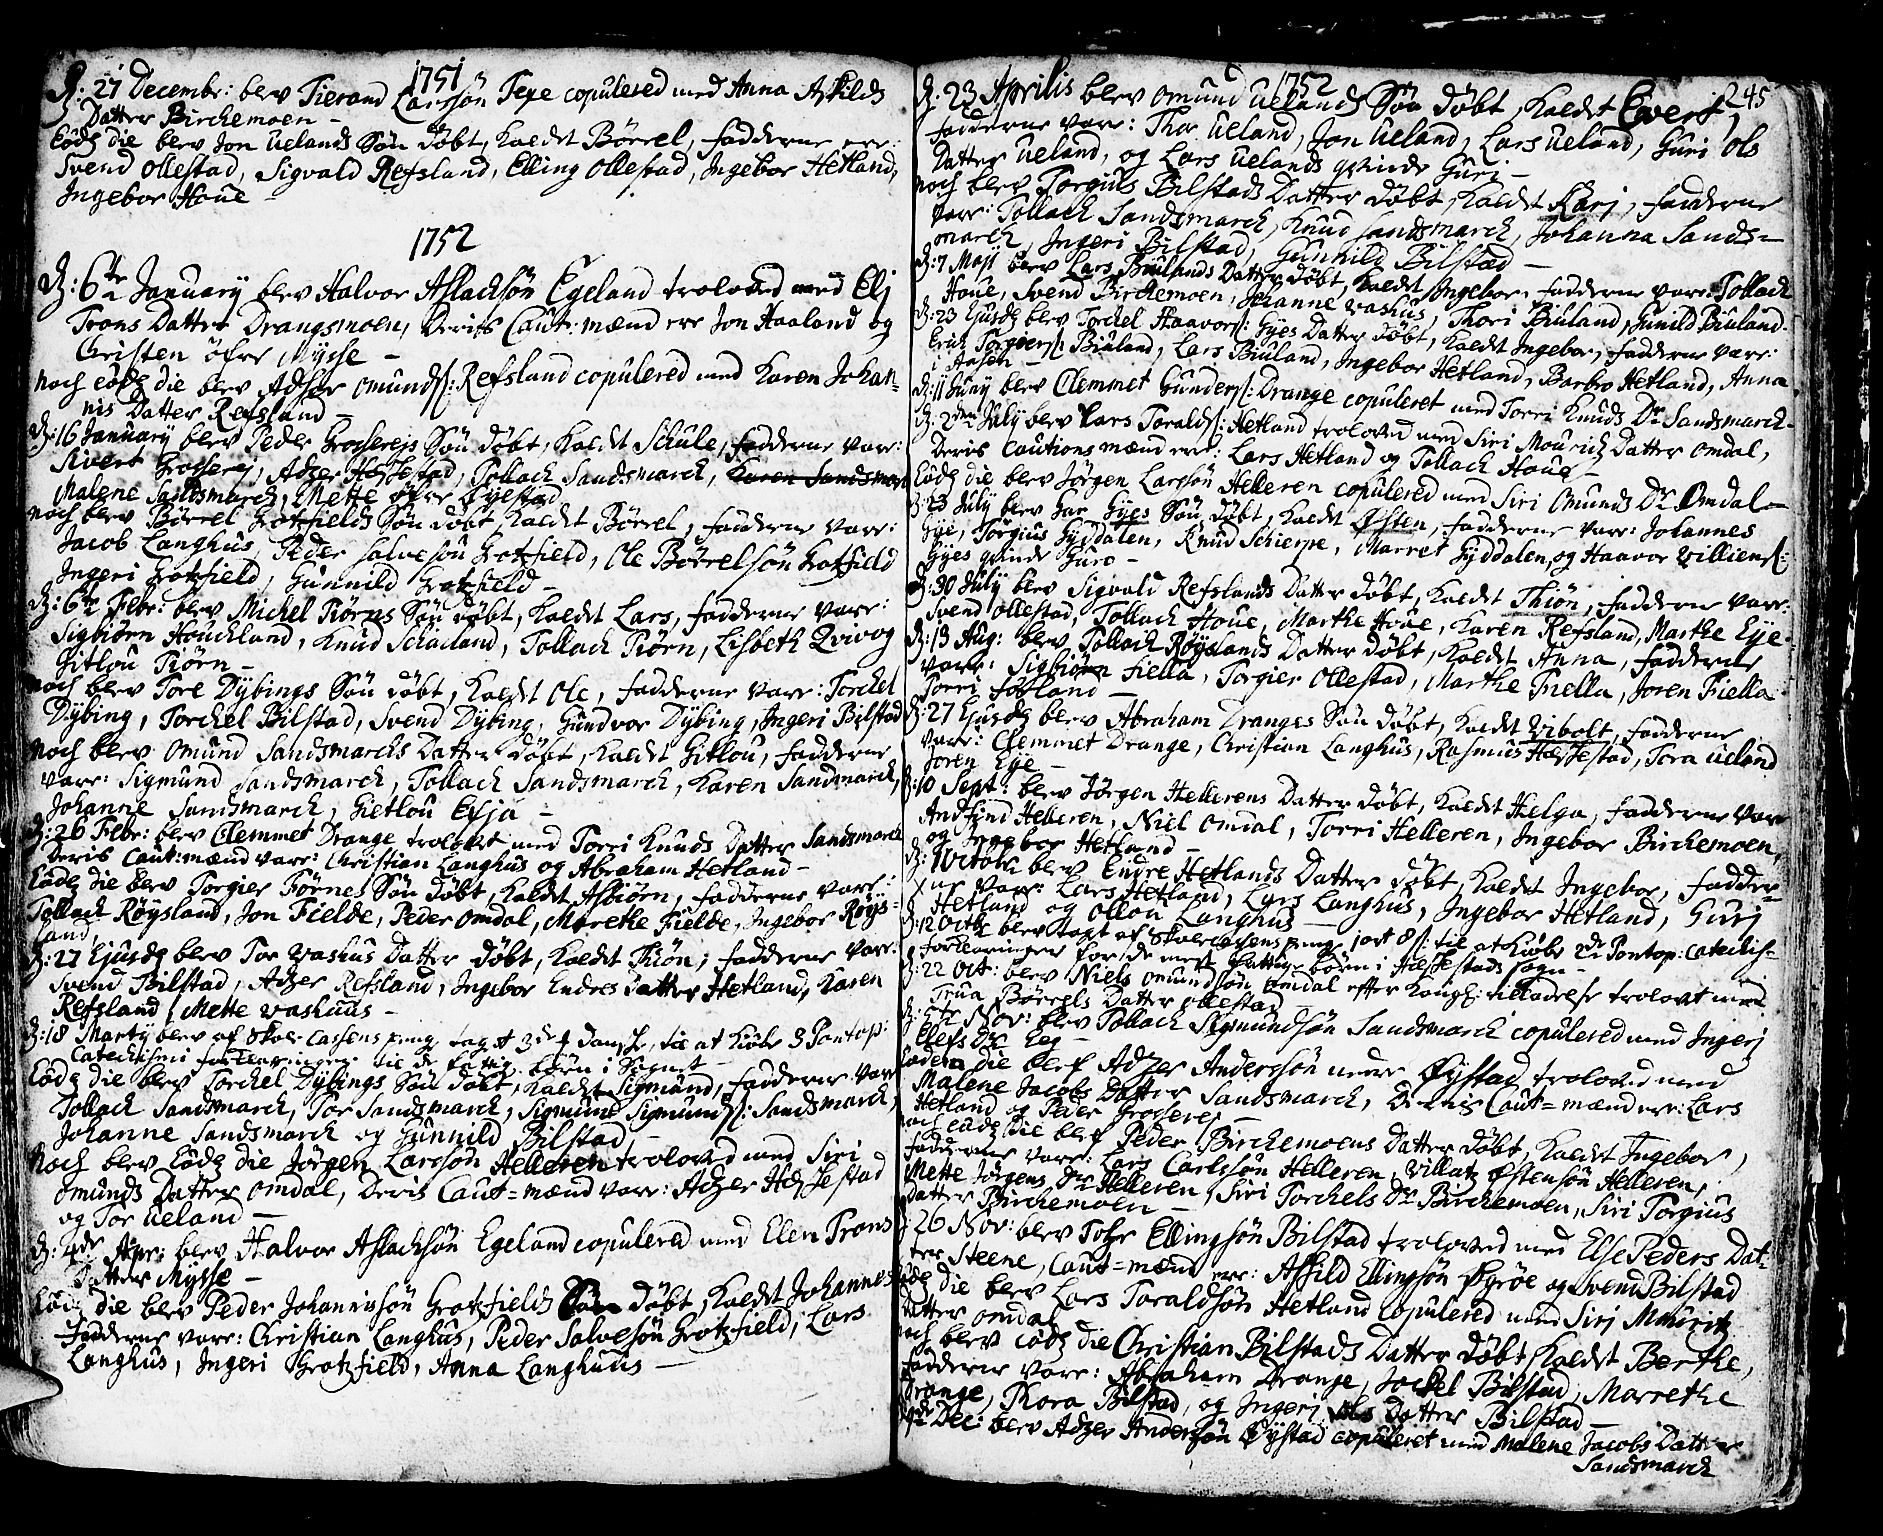 1751
D: 27 Decembr: blev Tierand Larssön Fege copulered med Anna Askilds
Datter Birchemoen —
Eodẽ die blev Jon Uelands Sön döbt, kaldet Börrel, fadderne ere:
Svend Ollestad, Sigvald Refsland, Elling Ollestad, Ingebor Hetland,
Ingebor Houe —
1752
D: 6te January blev Halvor Aslachsön Egeland trolovd med Elj
Trons Datter Drangsmoen, Deris Caut: mænd ere Jon Haaland og
Christen öfre Mysse —
noch eodẽ die blev Adser Omunds: Refsland copulered med Karen Johan-
nis Datter Refsland —
D: 16 January blev Peder Grosereis Sön döbt, kaldet Schule, fadderne vare:
Sivert Groserej, Adzer Hæstestad, Tollach Sandsmarch, Karen Sandsmarch
Malene Sandsmarch, Mette öfre Öyestad
noch blev Börrel Grotfields Sön döbt kaldet Börrel, fadderne vare:
Jacob Langhus, Peder Salvesön Grotzfield, Ole Börrelsön Grotzfield
Ingeri Grotzfield, Gunnild Grotzfield —
D: 6te Febr: blev Michel Tiörns Sön döbt, kaldet Lars, fadderne vare:
Sigbiörn Houckland, Knud Schaaland, Tollach Tiörn, Lisbeth Qvivog
Gitlou Tiörn —
noch blev Tore Dybings Sön döbt, kaldet Ole, fadderne vare: Torchel
Dybing, Torchel Bilstad, Svend Dybing, Gundvor Dybing, Ingeri Bilstad
noch blev Omund Sandsmarchs Datter döbt, kaldet Gitlou, fadderne
vare: Sigmund Sandsmarch, Tollach Sandsmarch, Karen Sandmarch,
Johanne Sandsmarch, Gietlou Esja —
D: 26 Febr: blev Clemmet Drange trolovet med Torri Knuds Datter Sandsmarch
Deris Caut: mænd vare: Christian Langhus og Abraham Hetland —
Eodẽ die blev Torgier Förne Sön döbt, kaldet Asbiörn, fadderne vare:
Tollach Röysland, Jon Fielde, Peder Omdal, Marethe Fielde, Ingebor Röys-
land,
D: 27 Ejusdẽ blev Tor Vashus Datter döbt, kaldet Thiön, fadderne vare:
Svend Bilstad, Adzer Refsland, Ingebor Endres Datter Hetland, Karen
Refsland, Mette Vashuus —
D: 18 Marty blev af Skole Cassens penge tagt 3 danske, til at kiöbe 3 Pontop:
Catechismi forklaringer til de fattige börn i Sognet —
Eodẽ die blev Torchel Dybings Sön döbt, kaldet Sigmund, fadderne vare
Tollach Sandsmarch, Tor Sandsmarch, Sigmund Sigmunds: Sandsmarch,
Johanne Sandsmarch og Gunnild Bilstad, —
Noch blev Eodẽ die Jörgen Larssön Helleren trolovd med Siri
Omunds Datter Omdal, Deris Caut= mænd vare: Adzer Hæstestad
og Tor Ueland —
D: 4de Apr: blev Halvor Aslachsön Egeland copulered med Elen Trons
Datter Mysse —
Eodẽ die blev Peder Johannissön Grotzfields Sön döbt, kaldet Johannes
Fadderne vare: Christian Langhus, Peder Salvesön Grotzfield, Lars
Langhus, Ingeri Grotzfield, Anna Langhuus —
1752
245
D: 23 Aprilis blev Omund Uelands Sön döbt, kaldet Evert,
fadderne vare: Thor Ueland, Jon Ueland, Lars Ueland, Guri Ols
Datter Ueland, og Lars Uelands qvinde Guri —
noch blev Torgius Bilstads Datter döbt, kaldet Karj, fadderne
vare: Tollach Sandsmarch, Knud Sandsmarch, Johanna Sands=
march, Ingeri Bilstad, Gunhild Bilstad —
D: 7 Maji blev Lars Biulands Datter döbt, kaldet Ingebor, fadderne vare: Tollach
Houe, Svend Birchemoen, Johanne Vashus, Thori Biuland, Gunild Biuland.
D: 23 Ejusdẽ blev Torchel Haavors: Gyes Datter döbt, kaldet Ingebor, fadderne vare:
Erich Torgers: Biuland, Lars Biuland, Ingebor Hetland, Barbro Hetland, Anna
i Aasen —
D: 11 Juny blev Clemmet Gunders: Drange copuleret med Torri Knuds Dr Sandsmarch
D: 2den July blev Lars Toralds: Hetland trolovd med Siri Mouritz Datter Omdal,
Deris Cautions mænd ere: Lars Hetland og Tollach Houe —
Eodẽ die blev Jörgen Larssön Helleren copulered med Siri Omunds Dr Omdal —
D: 23 July blev Jar Gyes Sön döbt, kaldet Östen, fadderne vare: Johannes
Gye, Torgius Gyddalen, Knud Schierpe, Marret Gyddalen, og Haavor Villiems:
Gyes qvinde Guro —
D: 30 July blev Sigvald Refslands Datter döbt, kaldet Thiön, fadderne vare:
Svend Ollestad, Tollach Houe, Marthe Houe, Karen Refsland, Marthe Eye.
D: 13 Aug: blev Tollach Röyslands Datter döbt, kaldet Anna, fadderne
vare: Sigbiörn Fiella, Torgier Ollestad, Marthe Fiella, Joren Fiella
Torri Fotland —
D: 27 Ejusdẽ blev Abraham Dranges Sön döbt, kaldet Vibolt, fadderne
vare: Clemmet Drange, Christian Langhus, Rasmus Hæstestad, Tora Ueland
Joren Eye —
D: 10 Sept: blev Jörgen Hellerens Datter döbt, kaldet Helga, fadderne vare
Andfind Helleren, Niel Omdal, Torri Helleren, Ingebor Birchemoen,
og Ingebor Hetland —
D: 1 Octob: blev Endre Hetlands Datter döbt, kaldet Ingebor, fadder-
ne vare: Lars Hetland, Lars Langhus, Ingebor Hetland, Gurj
Hetland og Ollou Langhus —
D: 12 Octb: blev tagt af Skolecassens penge til at kiöbe Pontop: Catechis=
forklaringer for de mest fattige börn i Hæstestads Sogn —
D: 22 Oct: blev Niels Omundsön Omdal efter Kongl: tilladelse trolovt med
Trua Börrels Datter Ollestad —
D: 5te Nov: blev Tollach Sigmundsön Sandsmarch copulered med Ingerj
Elefs Dr Eeg —
Eodem die blef Adzer Anderssön nedre Öystad trolovd med
Malene Jacobs Datter Sandsmarch, Deris Caut= mænd ere: Lars
Hetland og Peder Groserej —
noch eodẽ die blef Peder Birchemoens Datter döbt, kaldet Ingebor,
fadderne vare: Lars Carlssön Helleren, Villatz Östensön Helleren,
Mette Jörgens Dr Helleren, Siri Torchels Dr Birchemoen, Siri Torgius
Datter Birchemoen —
D: 26 Nov: blev Tolle Ellingsön Bilstad trolovd med Else Peders Dat-
ter Steene, Caut= mænd ere: Askild Ellingsön Öyröe og Svend Bilstad
Eodẽ die blev Lars Toraldsön Hetland Copulered med Sirj Mouritz
Datter Omdal
noch blev eodẽ die Christian Bilstads Datter döbt, kaldet Berthe,
fadderne vare: Abraham Drange, Jochel Bilstad, Marrethe
Drange, Thora Bilstad, og Ingerj Ols Datter Bilstad —
Dec: blev Adzer Andersön Öystad copuleret med Malene Jacobs Datter
Sandsmarch